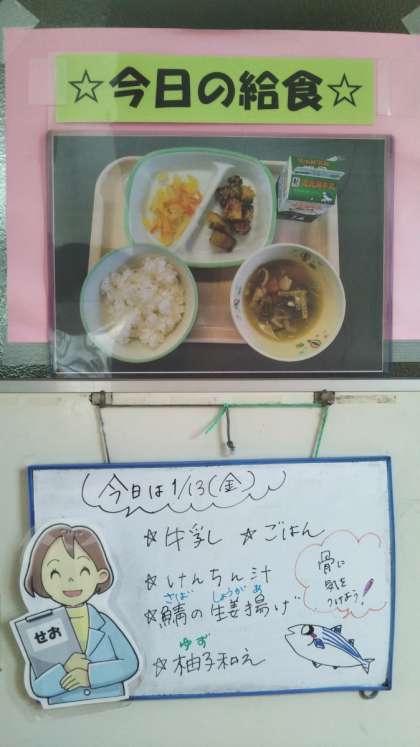 ☆今日の給食☆
今日は1/13(金)
☆牛乳 ☆ごはん
☆けんちん汁
さば しょうが あ
☆鯖の生姜揚げ
ゆず
☆柚子和え
骨に
気を
つけよう!
せお